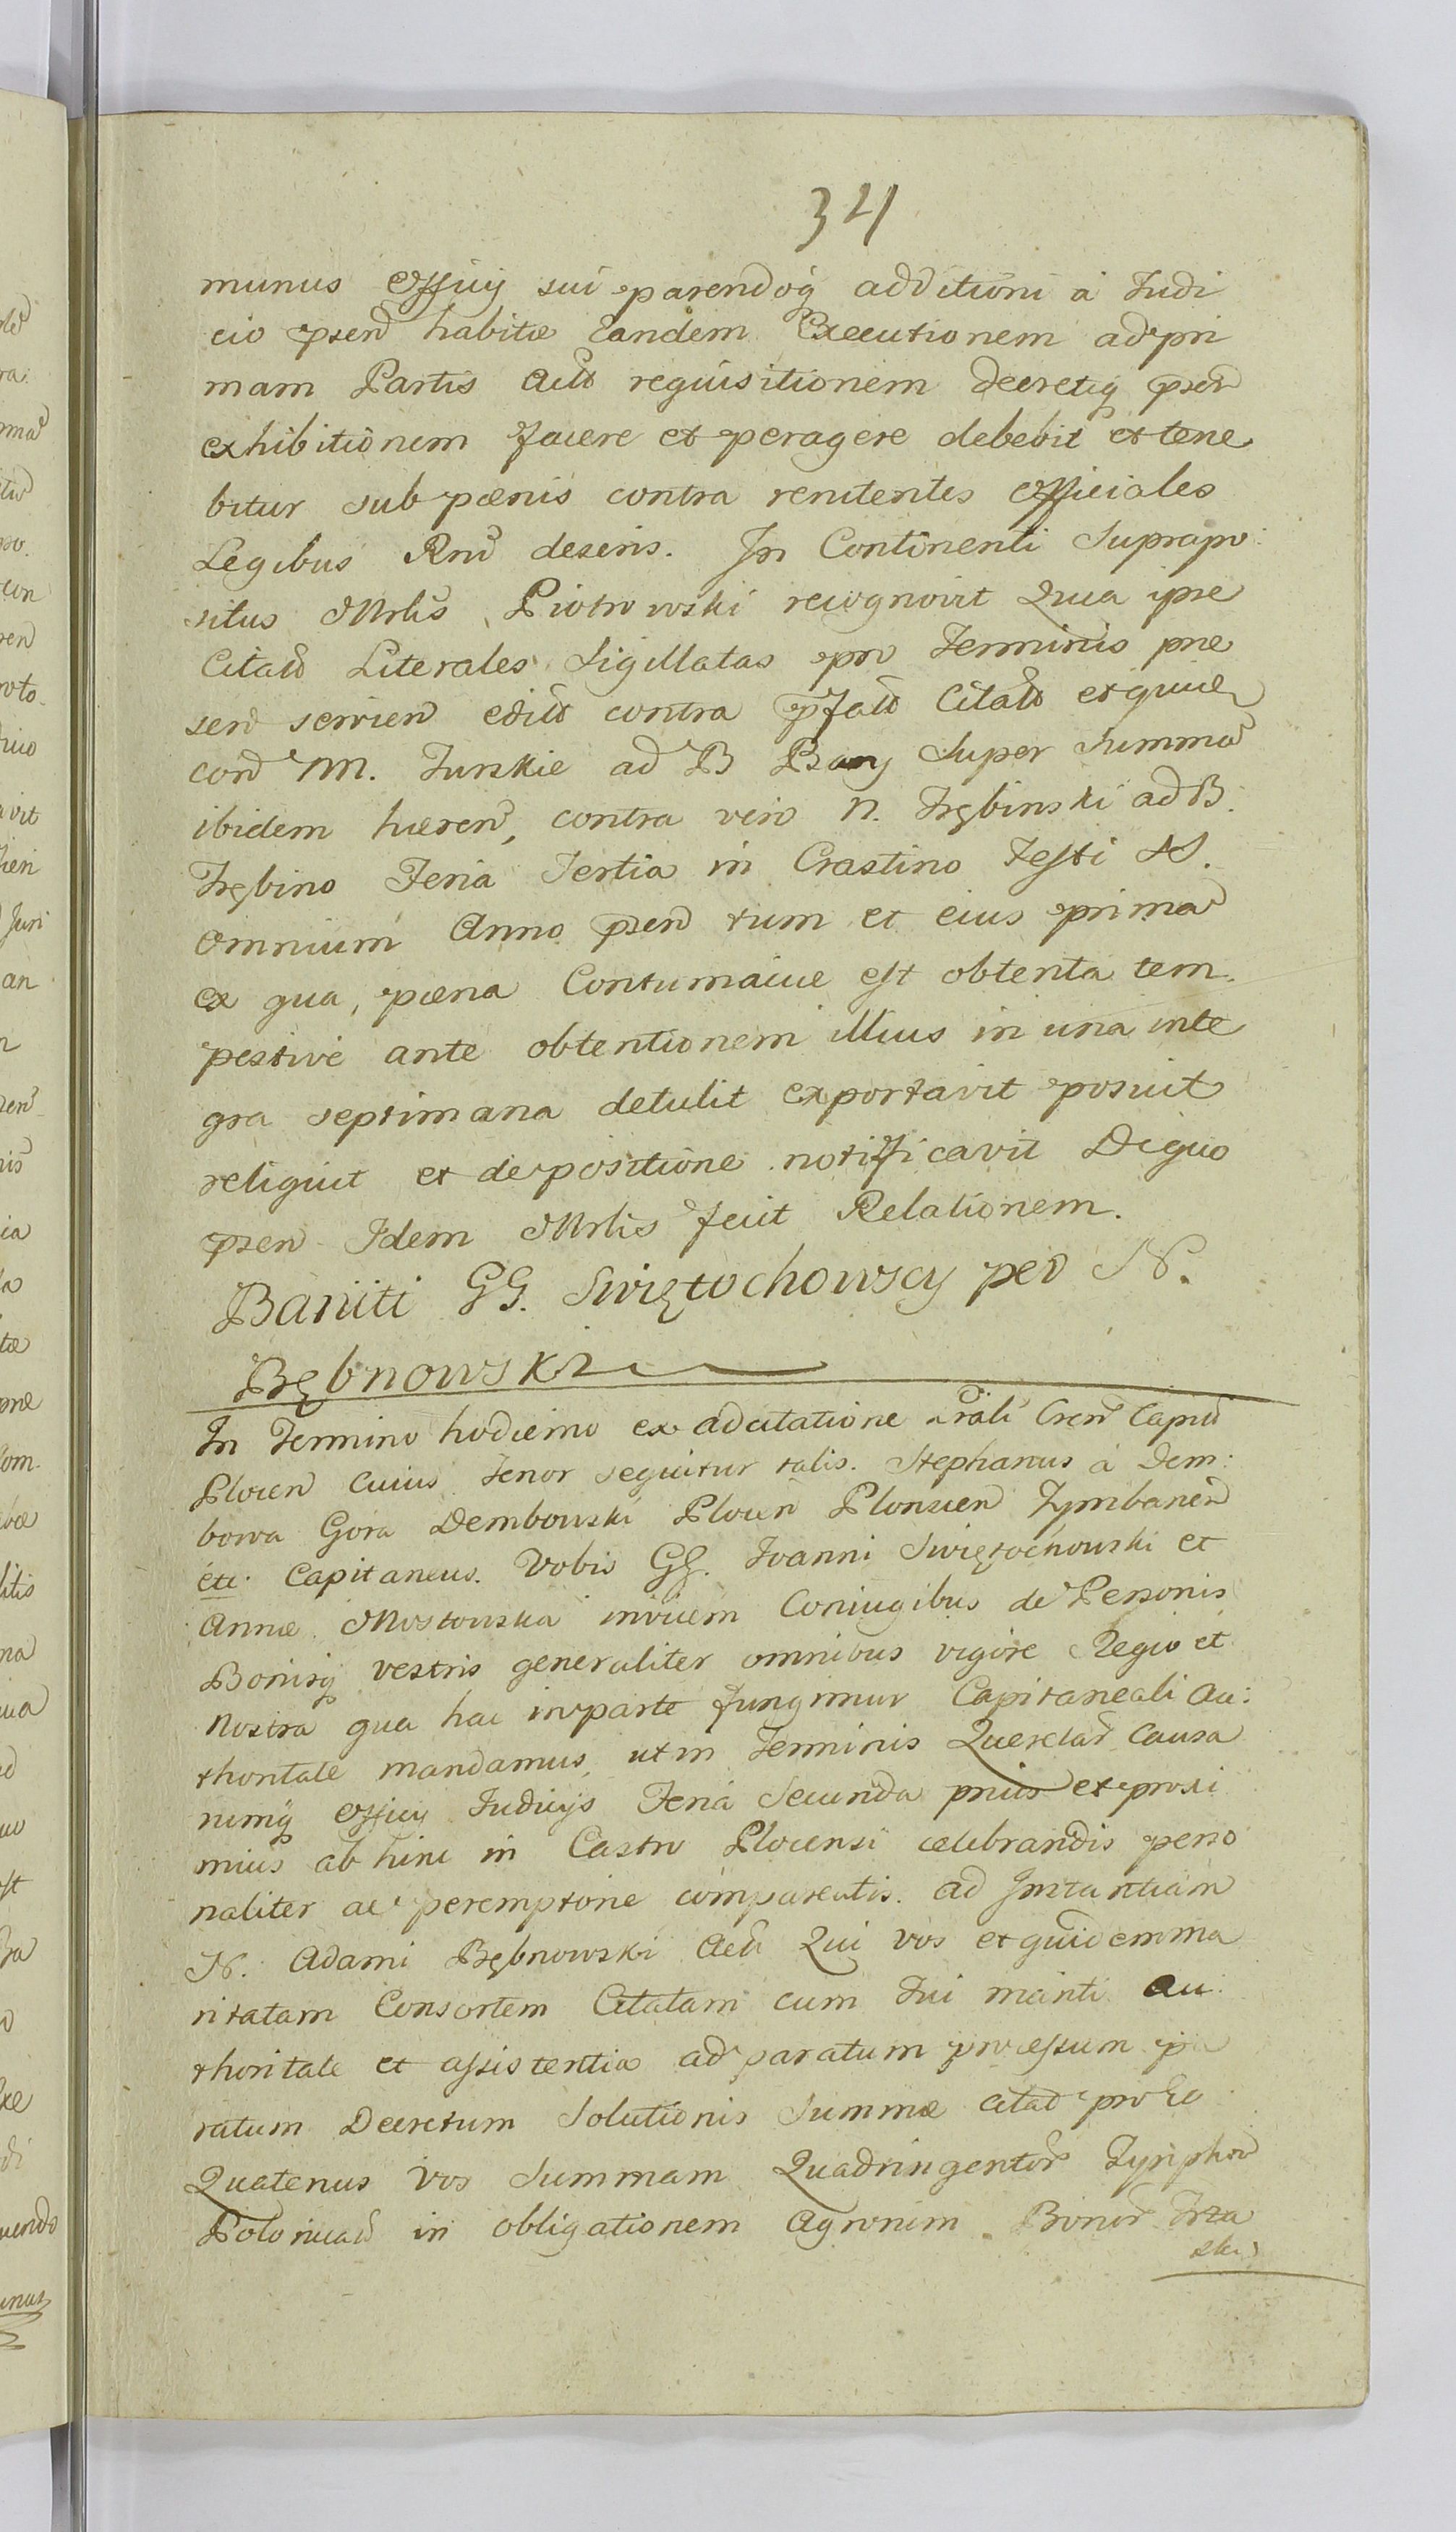 34
munus Officij sui parendoq additioni a Judi
cio psen habitæ Eandem Executionem ad pri
mam Partis Acto requisitionem Decretiq psen
exhibitionem facere et peragere debebit et tene
bitur sub pœnis contra renitentes Officiales
Legibus Rni descris. In Continenti Suprapo:
situs Mrlis Piotrowski recognovit Quia ipse
Citaõ Literales Sigillatas pro Terminis præ
sen servien edito contra pfato Citato et quid
con M. Turskie ad B Bary Super Summa
ibidem hæren, contra vero N. Trębinski ad B.
Trębino Feria Tertia in Crastino Festi SS.
Omnium Anno psen tum et eius prima
ex qua, pœna Contumaciæ est obtenta tem
pestive ante obtentionem illius in una inte
gra septimana detulit exportavit posuit
reliquit et de positione notificavit De quo
psen Idem Mrlis fecit Relationem.
Baniti GG. Swiętochowscy per N.
Bębnowski
In Termino hodierno ex adcitatione rali Cren Capni
Plocen Cuius Tenor sequitur talis. Stephanus à Dem:
bowa Gora Dembowski Plocen Plonscen Tymbanen
etc: Capitaneus. Vobis GG. Joanni Swiętochowski et
Annæ Mostowska invicem Coniugibus de Personis
Bonisq vestris generaliter omnibus vigore Regio et
Nostra qua hac in parte fungimur Capitaneali Au:
thoritate mandamus, ut in Terminis Querelar Causa
rumq Officij Judicijs Feria Secunda prius et proxi
mius ab hinc in Castro Plocensi celebrandis perso
naliter ac peremptorie compareatis. ad Instantiam
N. Adami Bębnowski Act Qui vos et quidem ma
ritatam Consortem Citatam cum Tui mariti au
thoritate et assistentia ad paratum processum pa
ratum Decretum Solutionis Summæ citat pro eo
Quatenus Vos Summam Quadringentor Tynphor
Polonicaõ in obligationem Agrorum Bonor Trza
ska